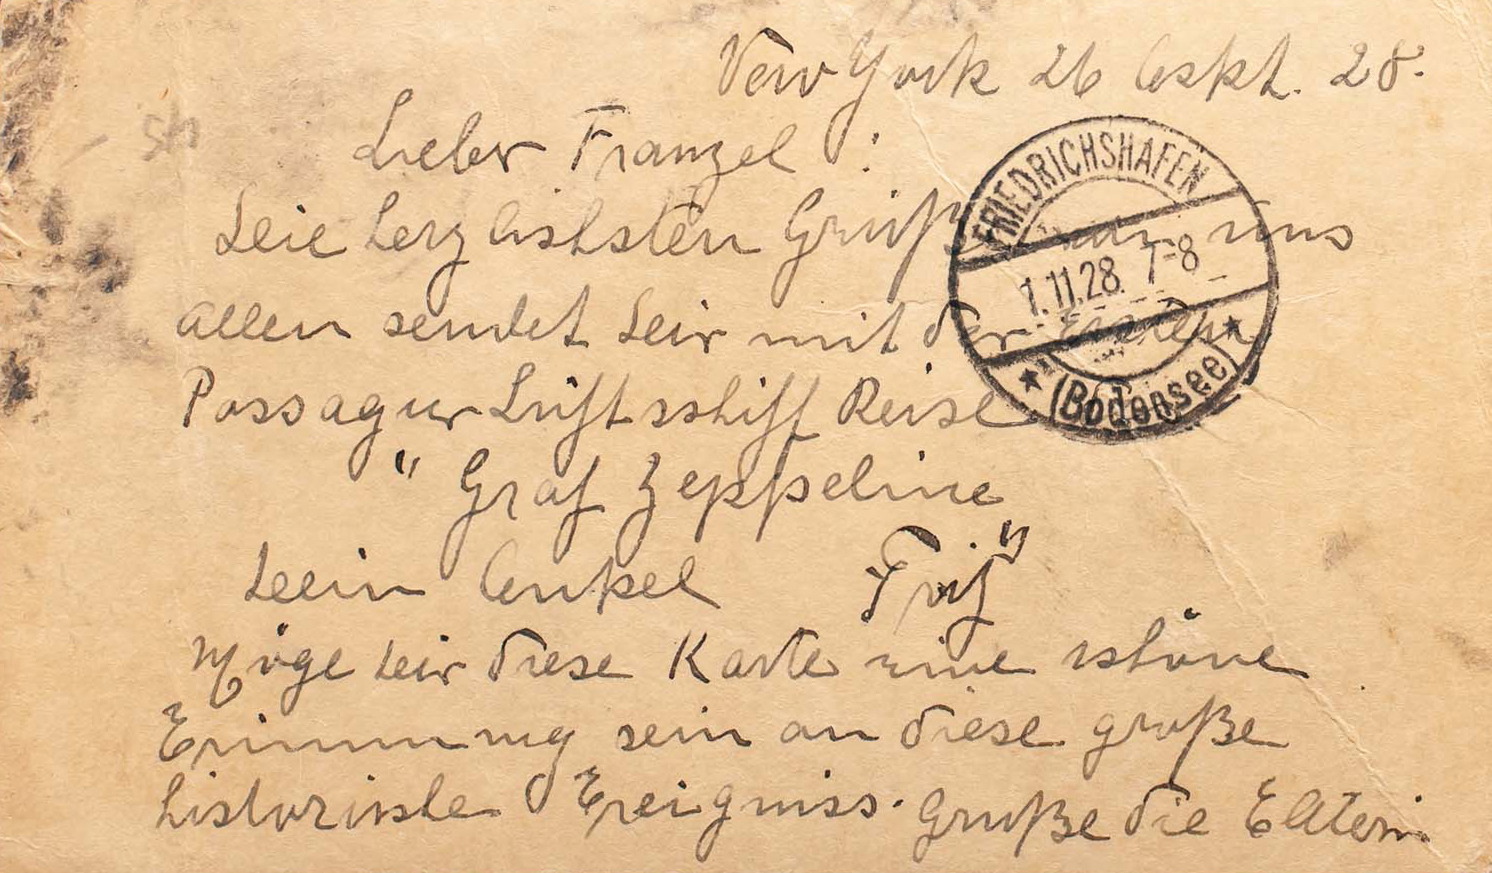 New York 26 Okt. 28.
Lieber Franzel :
Die herzlichsten Grüße von uns
allen sendet Dir mit der ersten
Passagier Luftschiff Reise
"Graf Zeppeline"
Dein Onkel Fritz
Möge Dir diese Karte eine schöne
Erinnerung sein an diese große
historische Ereigniss. Grüße die Eltern
FRIEDRICHSHAFEN
1.11.28. 7-8
(Bodensee)